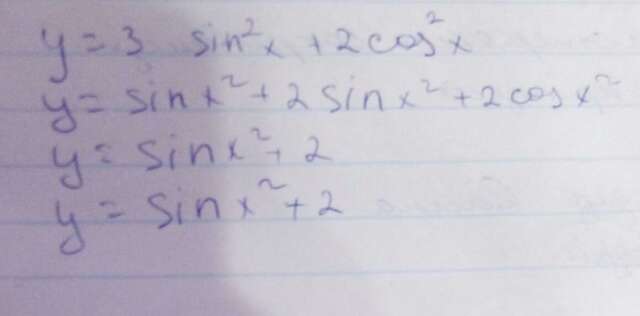 y = 3 sin²x + 2cos²x
y = sin x² + 2 sin x² + 2 cos x²
y = sin x² + 2
y = sin x² + 2